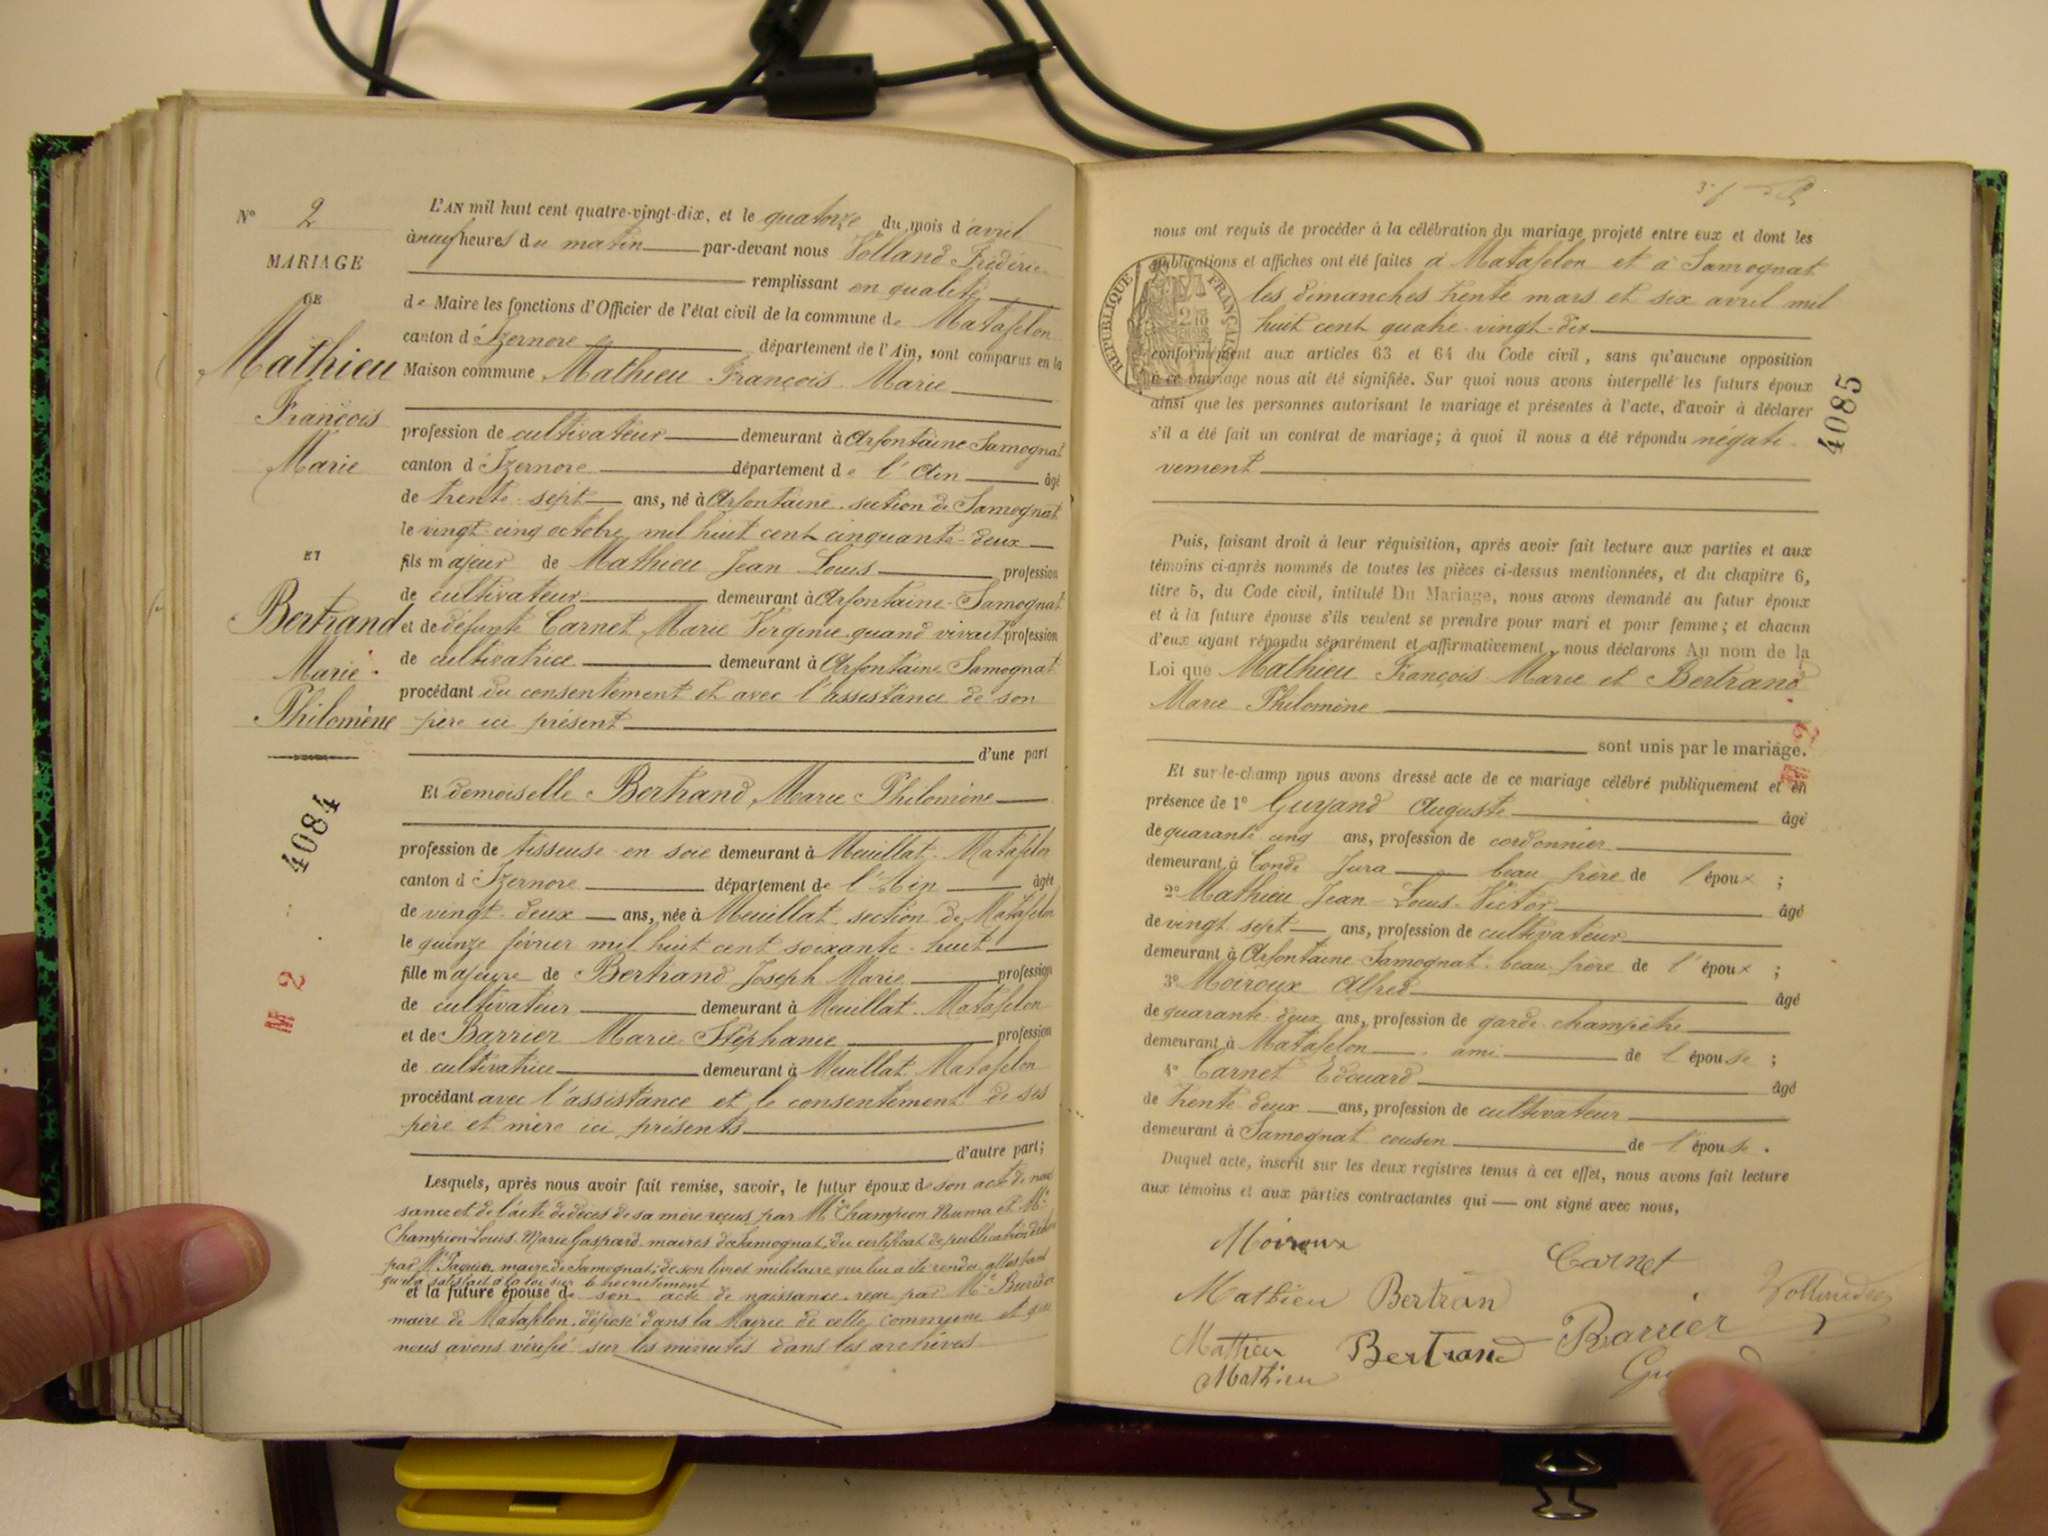 N° 2
MARIAGE
DE
Mathieu
François
Marie
ET
Bertrand
Marie
Philomène
4084
M 2
L'AN mil huit cent quatre-vingt-dix, et le quatorze du mois d'avril
à neuf heures du matin par-devant nous Volland Frédéric
remplissant en qualité
de Maire les fonctions d'Officier de l'état civil de la commune de Matafelon
canton d'Izernore département de l'Ain, sont comparus en la
Maison commune Mathieu François Marie
profession de cultivateur demeurant à Arfontaine Samognat
canton d'Izernore département de l'Ain âgé
de trente-sept ans, né à Arfontaine, section de Samognat
le vingt-cinq octobre mil huit cent cinquante-deux
fils majeur de Mathieu Jean Louis profession
de cultivateur demeurant à Arfontaine-Samognat
et de défunte Carnet Marie Virginie quand vivait profession
de cultivatrice demeurant à Arfontaine Samognat
procédant du consentement et avec l'assistance de son
père ici présent
d'une part
Et demoiselle Bertrand Marie Philomène
profession de tisseuse en soie demeurant à Meuillat. Matafelon
canton d'Izernore département de l'Ain âgée
de vingt-deux ans, née à Meuillat section de Matafelon
le quinze février mil huit cent soixante-huit
fille majeure de Bertrand Joseph Marie profession
de cultivateur demeurant à Meuillat. Matafelon
et de Barrier Marie Stéphanie profession
de cultivatrice demeurant à Meuillat. Matafelon
procédant avec l'assistance et le consentement de ses
père et mère ici présents
d'autre part;
Lesquels, après nous avoir fait remise, savoir, le futur époux de son acte de nais
sance et de l'acte de décès de sa mère reçus par Mr Champion Numa et Mr
Champion Louis Marie Gaspard maires de Samognat, du certificat de publication
par Mr maire de Samognat, de son livret militaire qui lui a été rendu attestant
qu'il a satisfait à la loi sur le recrutement
et la future épouse de son acte de naissance reçu par Mr
maire de Matafelon, déposé dans la Mairie de cette commune et que
nous avons vérifié sur les minutes dans les archives
nous ont requis de procéder à la célébration du mariage projeté entre eux et dont les
publications et affiches ont été faites à Matafelon et à Samognat
les dimanches trente mars et six avril mil
huit cent quatre-vingt-dix
RÉPUBLIQUE FRANÇAISE
conformément aux articles 63 et 64 du Code civil, sans qu'aucune opposition
à ce mariage nous ait été signifiée. Sur quoi nous avons interpellé les futurs époux
ainsi que les personnes autorisant le mariage et présentes à l'acte, d'avoir à déclarer
s'il a été fait un contrat de mariage; à quoi il nous a été répondu négati-
vement
4085
Puis, faisant droit à leur réquisition, après avoir fait lecture aux parties et aux
témoins ci-après nommés de toutes les pièces ci-dessus mentionnées, et du chapitre 6,
titre 5, du Code civil, intitulé Du Mariage, nous avons demandé au futur époux
et à la future épouse s'ils veulent se prendre pour mari et pour femme; et chacun
d'eux ayant répondu séparément et affirmativement, nous déclarons Au nom de la
Loi que Mathieu François Marie et Bertrand
Marie Philomène
sont unis par le mariage.
M 2
Et sur-le-champ nous avons dressé acte de ce mariage célébré publiquement et en
présence de 1° Guyand Auguste âgé
de quarante cinq ans, profession de cordonnier
demeurant à Condes Jura beau frère de l'époux ;
2° Mathieu Jean-Louis-Victor âgé
de vingt sept ans, profession de cultivateur
demeurant à Arfontaine Samognat. beau-frère de l'époux ;
3° Moiroux Alfred âgé
de quarante-deux ans, profession de garde-champêtre
demeurant à Matafelon ami de l'épouse ;
4° Carnet Edouard âgé
de trente-deux ans, profession de cultivateur
demeurant à Samognat cousin de l'épouse.
Duquel acte, inscrit sur les deux registres tenus à cet effet, nous avons fait lecture
aux témoins et aux parties contractantes qui ont signé avec nous,
Moiroux Carnet
Mathieu Bertran Vollandfre
Mathieu Bertrand Barrier
Mathieu